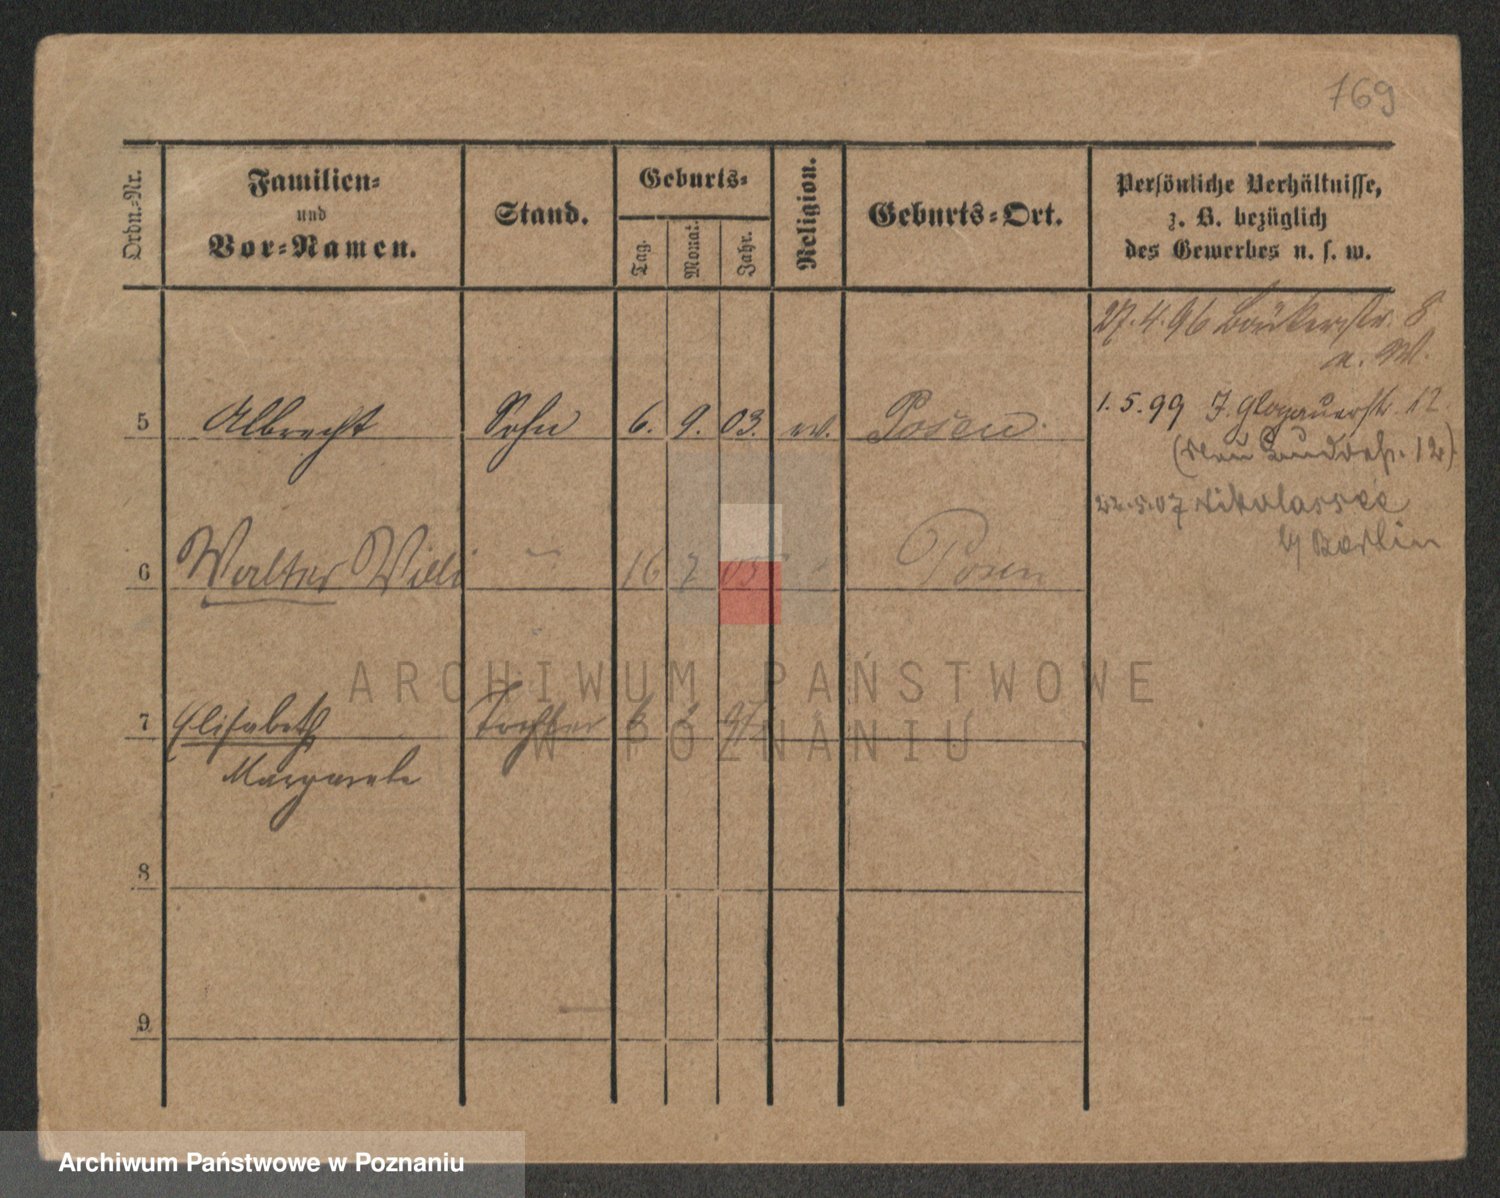 769
Ordn.-Nr.
Familien-
und
Vor-Namen.
Stand.
Geburts-
Tag.
Monat.
Jahr.
Religion.
Geburts-Ort.
Persönliche Verhältnisse,
z. B. bezüglich
des Gewerbes u. s. w.
27.4.96 Bäckerstr. 8
5 Albrecht Sohn 6. 9. 03. ev. Posen.
1.5.99 Glogauerstr. 12
12)
22.5.07 Nikolassee
b/ Berlin
6 Walter Willi 16 7 05 Posen
7 Elisabeth Tochter 6
Margarete
8
9
ARCHIWUM PAŃSTWOWE
W POZNANIU
Archiwum Państwowe w Poznaniu